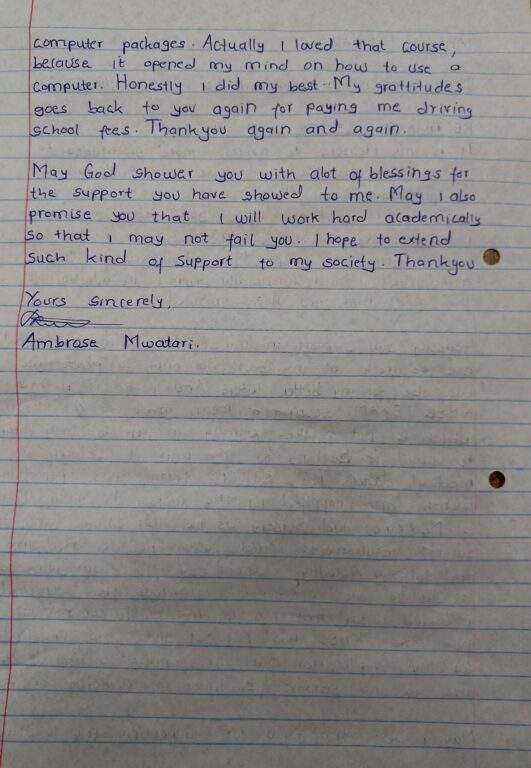 computer packages. Actually I loved that course,
because it opened my mind on how to use a
computer. Honestly I did my best. My grattitudes
goes back to you again for paying me driving
school fees. Thankyou again and again.
May God shower you with alot of blessings for
the support you have showed to me. May I also
promise you that I will work hard academically
so that I may not fail you. I hope to extend
such kind of support to my society. Thankyou
Yours sincerely,
Ambrose Mwatari.